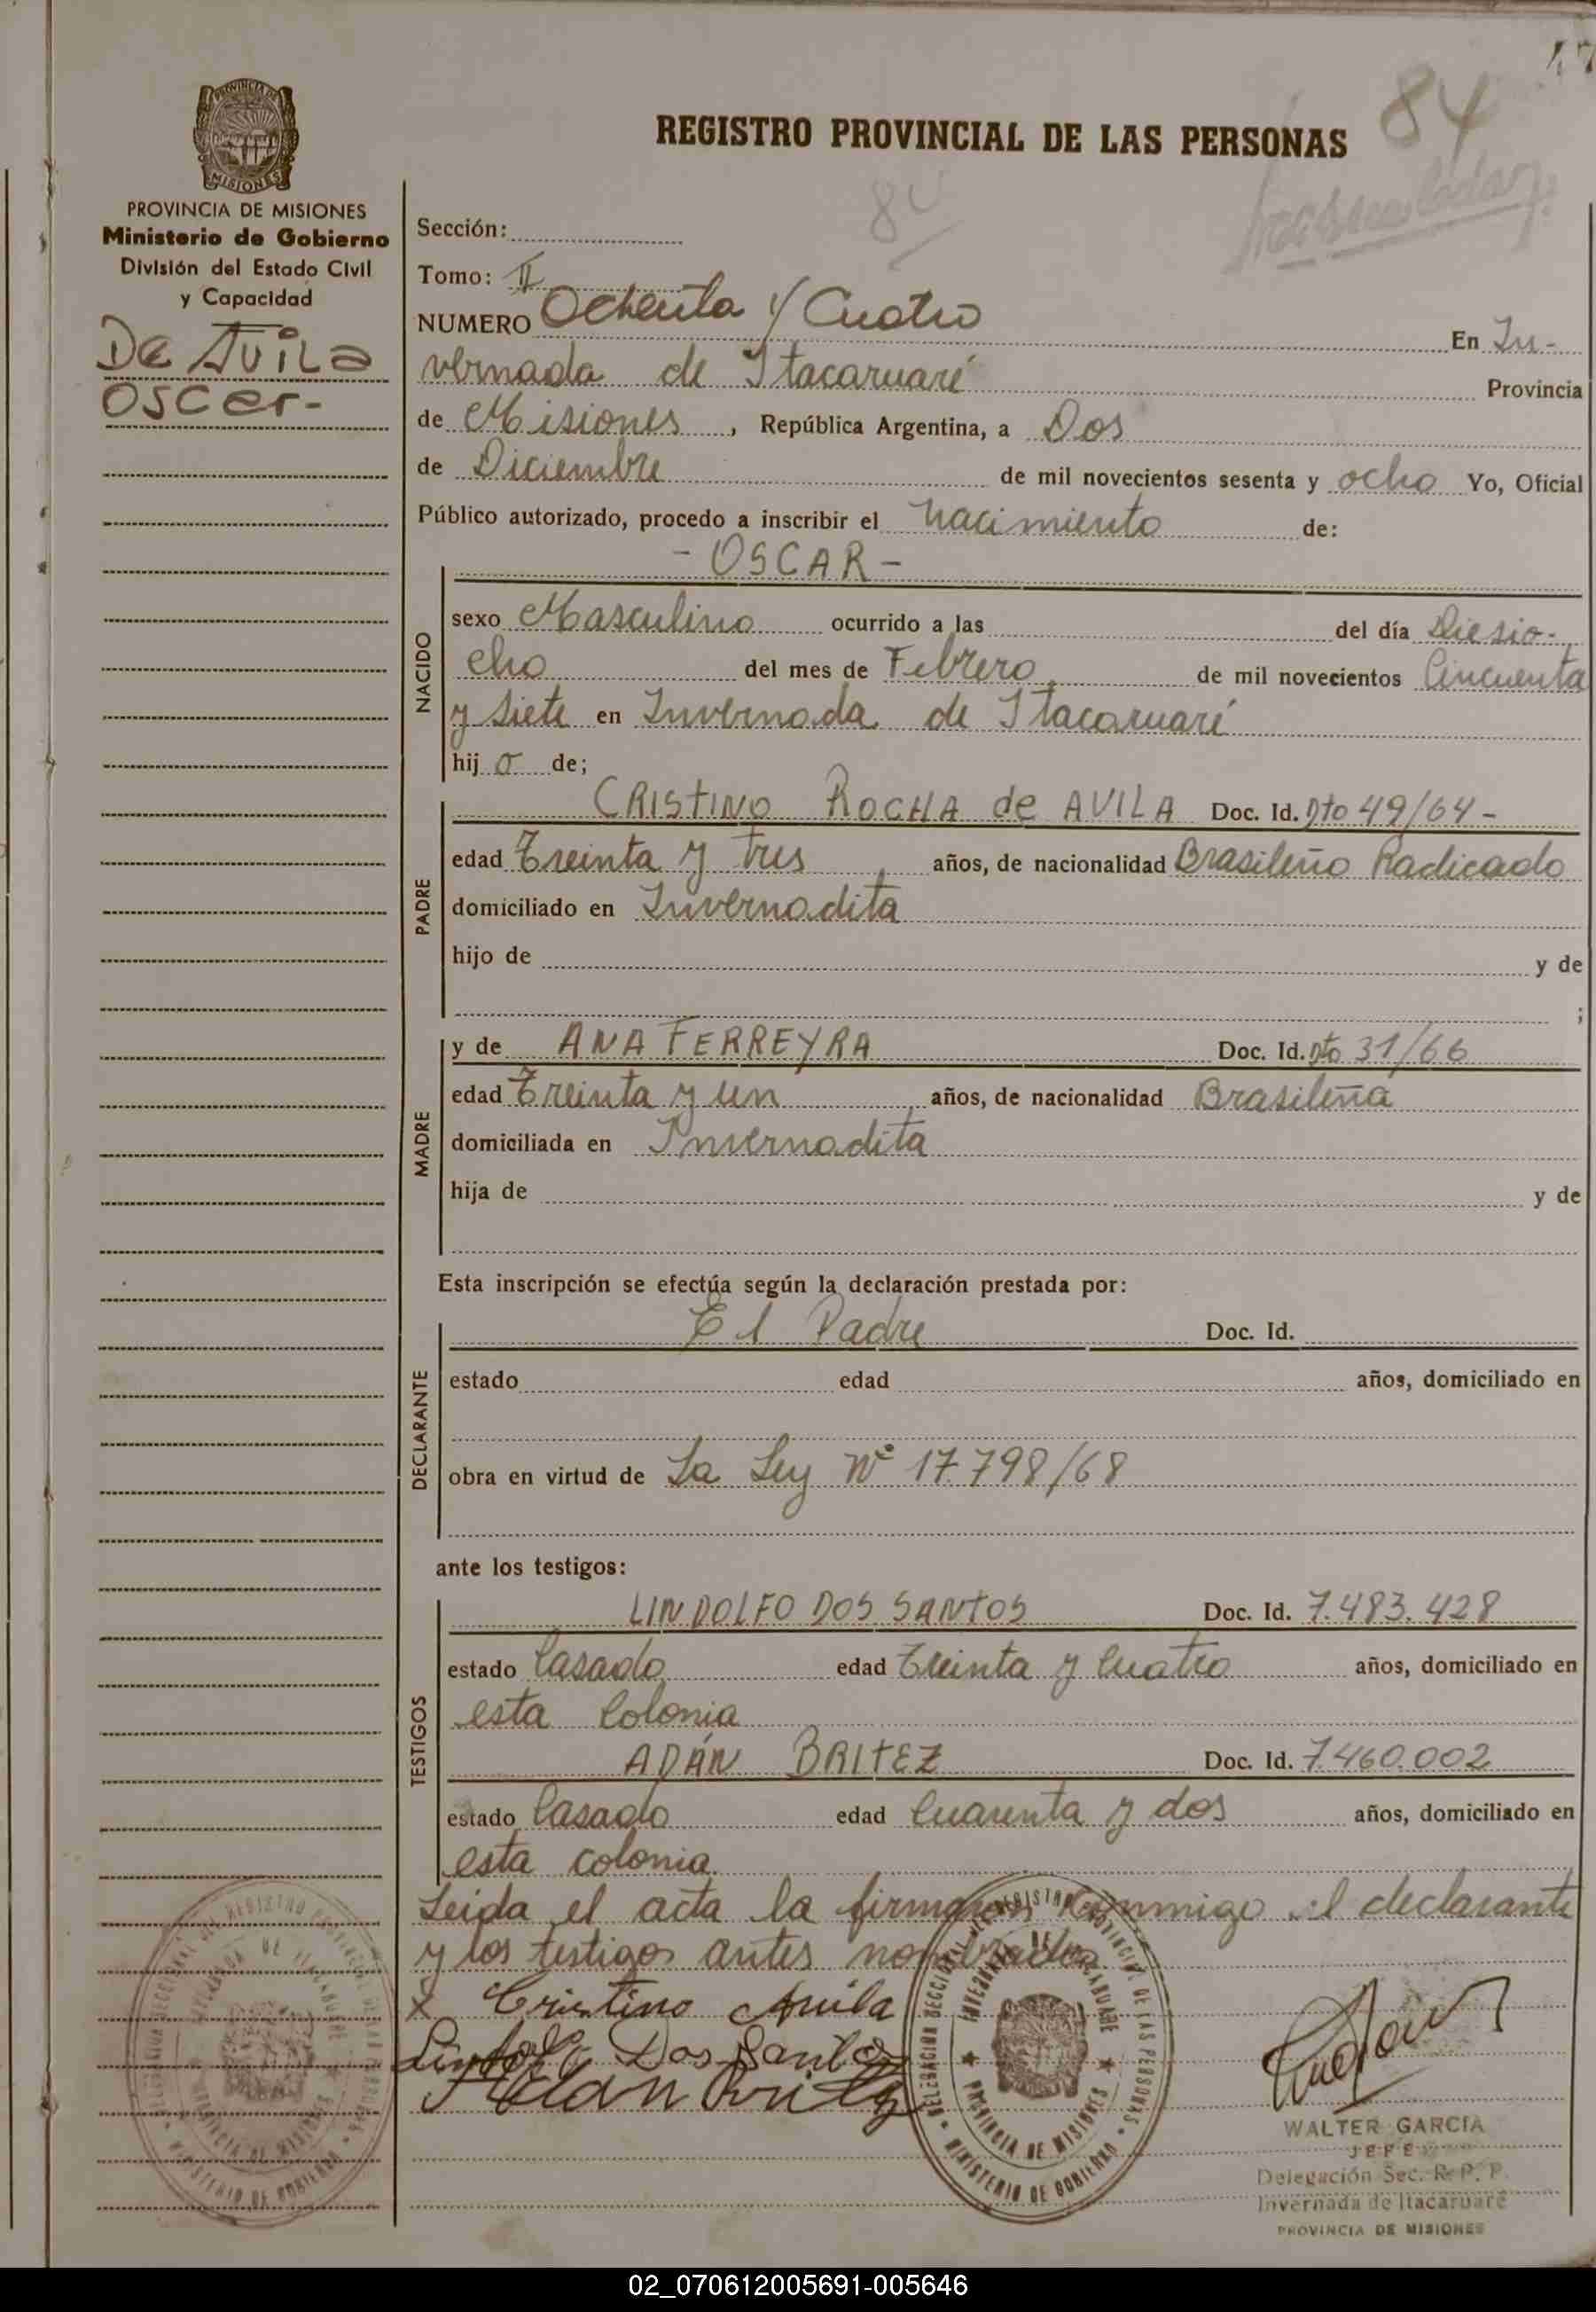 47
84
REGISTRO PROVINCIAL DE LAS PERSONAS
PROVINCIA DE MISIONES
MISIONES
PROVINCIA DE MISIONES
Ministerio de Gobierno
División del Estado Civil
y Capacidad
De Avila
Oscar-
84
Sección:
Tomo: II
NUMERO Ochenta y Cuatro En In-
vernada de Itacaruaré Provincia
de Misiones, República Argentina, a Dos
de Diciembre de mil novecientos sesenta y ocho Yo, Oficial
Público autorizado, procedo a inscribir el nacimiento de:
- OSCAR -
NACIDO
sexo Masculino ocurrido a las del día Diesio-
cho del mes de Febrero de mil novecientos Cincuenta
y siete en Invernada de Itacaruaré
hij o de;
PADRE
CRISTINO ROCHA de AVILA Doc. Id. Dto 49/64-
edad Treinta y tres años, de nacionalidad Brasileño Radicado
domiciliado en Invernadita
hijo de y de
;
MADRE
y de ANA FERREYRA Doc. Id. Dto 31/66
edad Treinta y un años, de nacionalidad Brasileña
domiciliada en Invernadita
hija de y de
Esta inscripción se efectúa según la declaración prestada por:
DECLARANTE
El Padre Doc. Id.
estado edad años, domiciliado en
obra en virtud de La Ley Nº 17.798/68
ante los testigos:
TESTIGOS
LINDOLFO DOS SANTOS Doc. Id. 7.483.428
estado Casado edad Treinta y Cuatro años, domiciliado en
esta Colonia
ADÁN BRITEZ Doc. Id. 7.460.002
estado Casado edad Cuarenta y dos años, domiciliado en
esta colonia
Leida el acta la firmaron conmigo el declarante
y los testigos antes nombrados.
x Cristino Avila
Lindolfo Dos Santos
Adan Britez
DELEGACION SECCIONAL DEL REGISTRO PROVINCIAL DE LAS PERSONAS
INVERNADA DE ITACARUARE
PROVINCIA DE MISIONES
MINISTERIO DE GOBIERNO
WALTER GARCIA
JEFE
Delegación Sec. R. P. P.
Invernada de Itacaruaré
PROVINCIA DE MISIONES
02_070612005691-005646